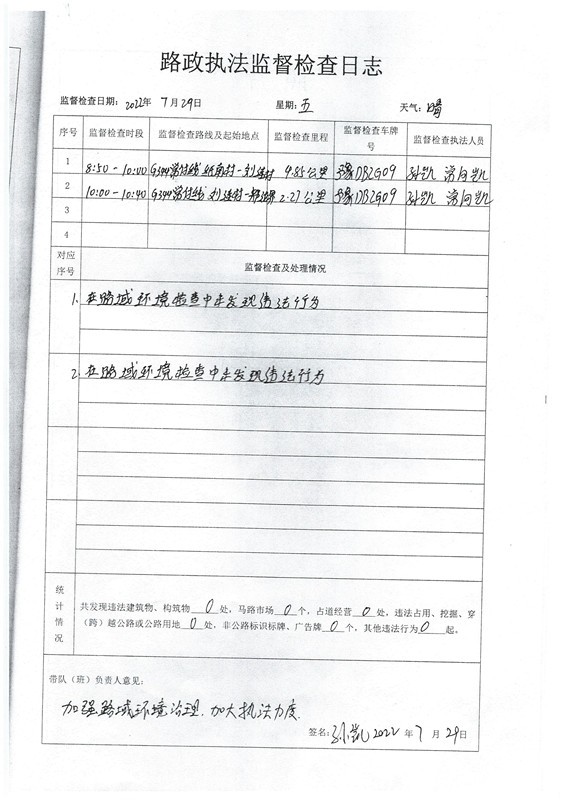 路政执法监督检查日志
监督检查日期：2022年 7月29日 星期：五 天气：晴
序号 监督检查时段 监督检查路线及起始地点 监督检查里程 监督检查车牌号 监督检查执法人员
1 8:50-10:00 G344 4.85公里 豫DB2G09 孙凯
2 10:00-10:40 G344 2.27公里 豫DB2G09 孙凯
3
4
对应序号 监督检查及处理情况
1. 在路域环境检查中未发现违法行为
2. 在路域环境检查中未发现违法行为
统计情况
共发现违法建筑物、构筑物 0 处，马路市场 0 个，占道经营 0 处，违法占用、挖掘、穿
（跨）越公路或公路用地 0 处，非公路标识标牌、广告牌 0 个，其他违法行为 0 起。
带队（班）负责人意见：
加强路域环境治理、加大执法力度.
签名：孙凯 2022 年 7 月 29日